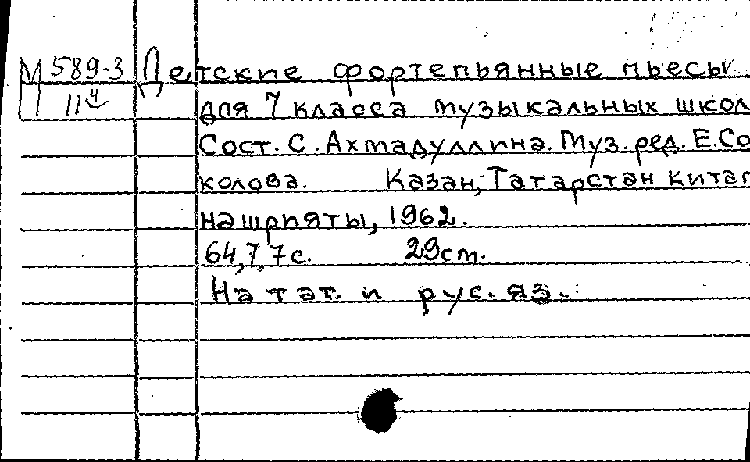 М 589-3 Детские фортепьянные пьесы
11 для 7 класса музыкальных школ
Сост. С. Ахмадуллина. Муз. ред. Е. Со
колова. Казан, Татарстан китап
нашрияты, 1962.
64, 7, 7с. 29см.
На тат. и рус. яз.